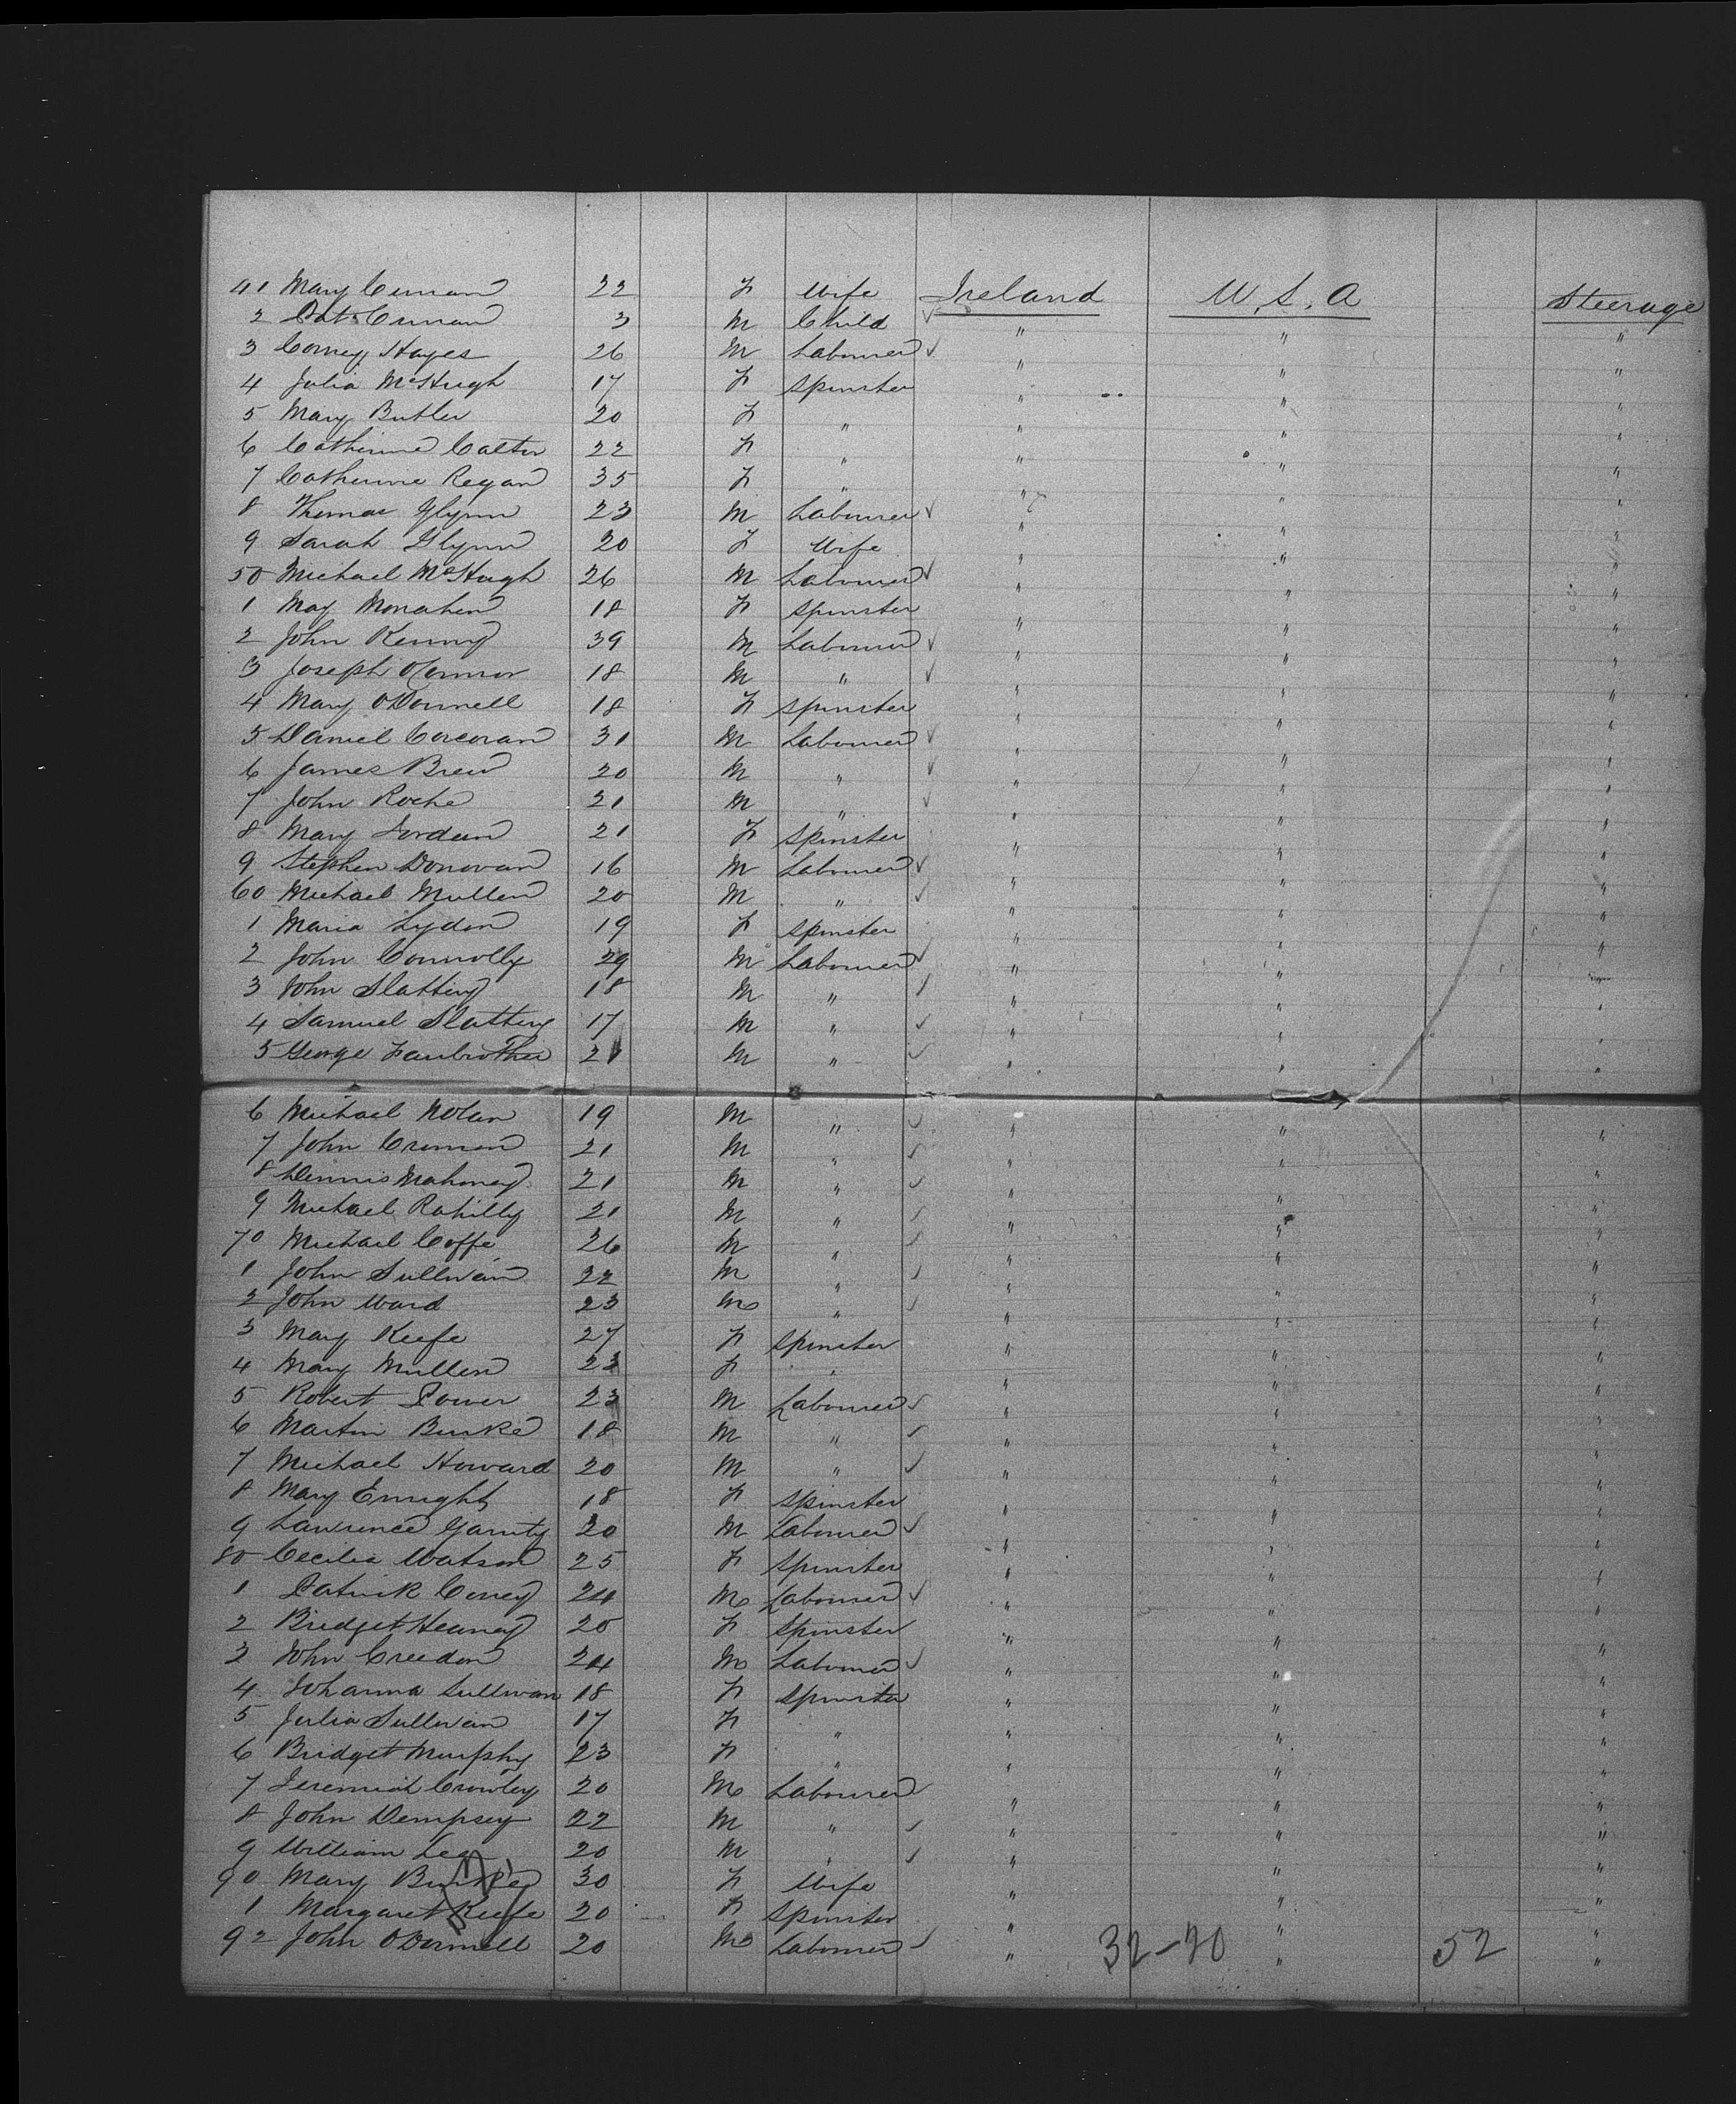 41 Mary Curran 22 F Wife Ireland U.S.A Steerage
2 Pat Curran 3 M Child " " "
3 Corney Hayes 26 M Labourer " " "
4 Julia McHugh 17 F Spinster " " "
5 Mary Butler 20 F " " " "
6 Catherine 22 F " " " "
7 Catherine Regan 35 F " " " "
8 Thomas Glynn 23 M Labourer " " "
9 Sarah Glynn 20 F Wife " " "
50 Michael McHugh 26 M Labourer " " "
1 May Monahen 18 F Spinster " " "
2 John Kenny 39 M Labourer " " "
3 Joseph OConnor 18 M " " " "
4 Mary ODonnell 18 F Spinster " " "
5 Daniel Corcoran 31 M Labourer " " "
6 James Brew 20 M " " " "
7 John Roche 21 M " " " "
8 Mary Jordan 21 F Spinster " " "
9 Stephen Donovan 16 M Labourer " " "
60 Michael Mullen 20 M " " " "
1 Maria Lydon 19 F Spinster " " "
2 John Connolly 29 M Labourer " " "
3 John Slattery 18 M " " " "
4 Samuel Slattery 17 M " " " "
5 George Fairbrother 21 M " " " "
6 Michael Nolan 19 M " " " "
7 John Cremen 21 M " " " "
8 Dennis Mahoney 21 M " " " "
9 Michael Rahilly 21 M " " " "
70 Michael Coffe 26 M " " " "
1 John Sullivan 22 M " " " "
2 John Ward 23 M " " " "
3 May Keefe 27 F Spinster " " "
4 Mary Mullen 23 F " " " "
5 Robert Power 23 M Labourer " " "
6 Martin Burke 18 M " " " "
7 Michael Howard 20 M " " " "
8 Mary Enright 18 F Spinster " " "
9 Lawrence Garrity 20 M Labourer " " "
80 Cecilia Watson 25 F Spinster " " "
1 Patrick 24 M Labourer " " "
2 Bridget Heaney 20 F Spinster " " "
3 John Creedon 24 M Labourer " " "
4 Johanna Sullivan 18 F Spinster " " "
5 Julia Sullivan 17 F " " " "
6 Bridget Murphy 23 F " " " "
7 Jeremiah Crowley 20 M Labourer " " "
8 John Dempsey 22 M " " " "
9 William Lee 20 M " " " "
90 Mary Burke 30 F Wife " " "
1 Margaret Keefe 20 F Spinster " " "
92 John ODonnell 20 M Labourer " 32-20 " 52 "